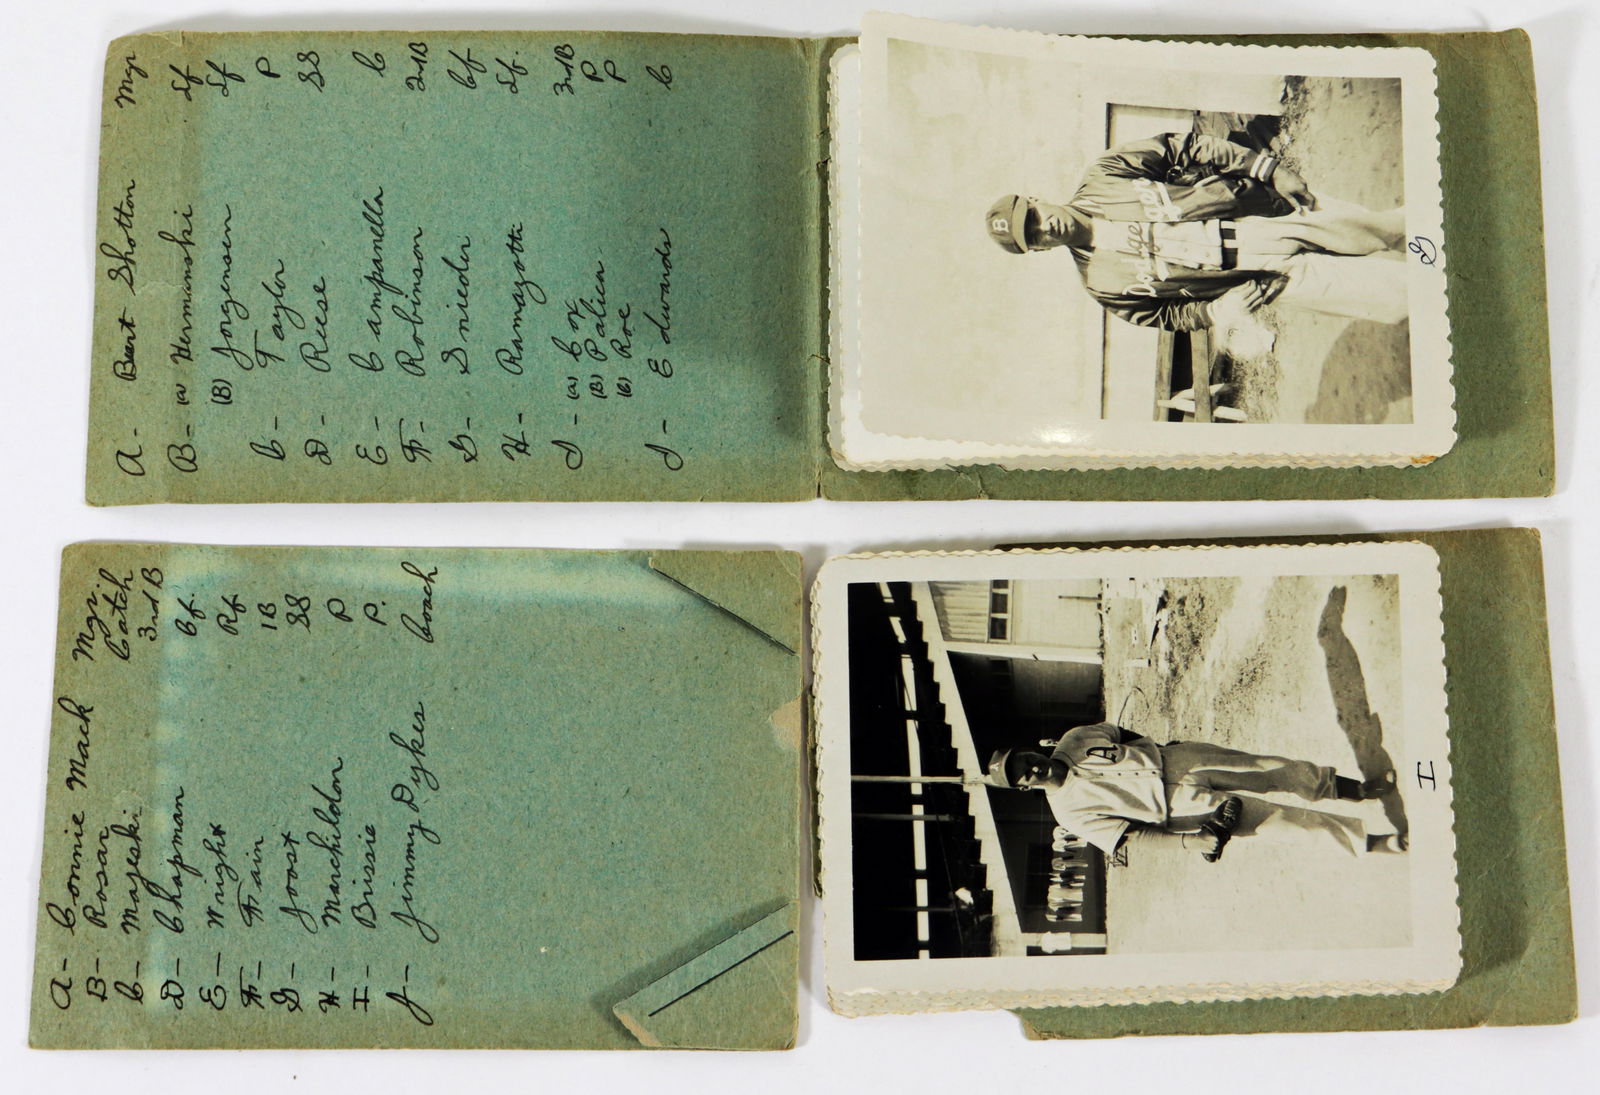 A- Burt Shotton Mgr
B- (a) Hermanski Lf
(B) Jorgensen Lf
C- Taylor P
D- Reese SS
E- Campanella C
F- Robinson 3rdB
G- Snieder Cf
H- Ramazotti Lf.
I- (a) Cox 3rdB
(B) Palica P
(C) Roe P
J- Edwards C
B
Dodgers
G
A- Connie Mack Mgr.
B- Rosar Catch
C- Majeski 3rd B
D- Chapman Cf.
E- Wright Rf
F- Fain 1B
G- Joost SS
H- Marchildon P
I- Brissie P.
J- Jimmy Dykes Coach
A
I